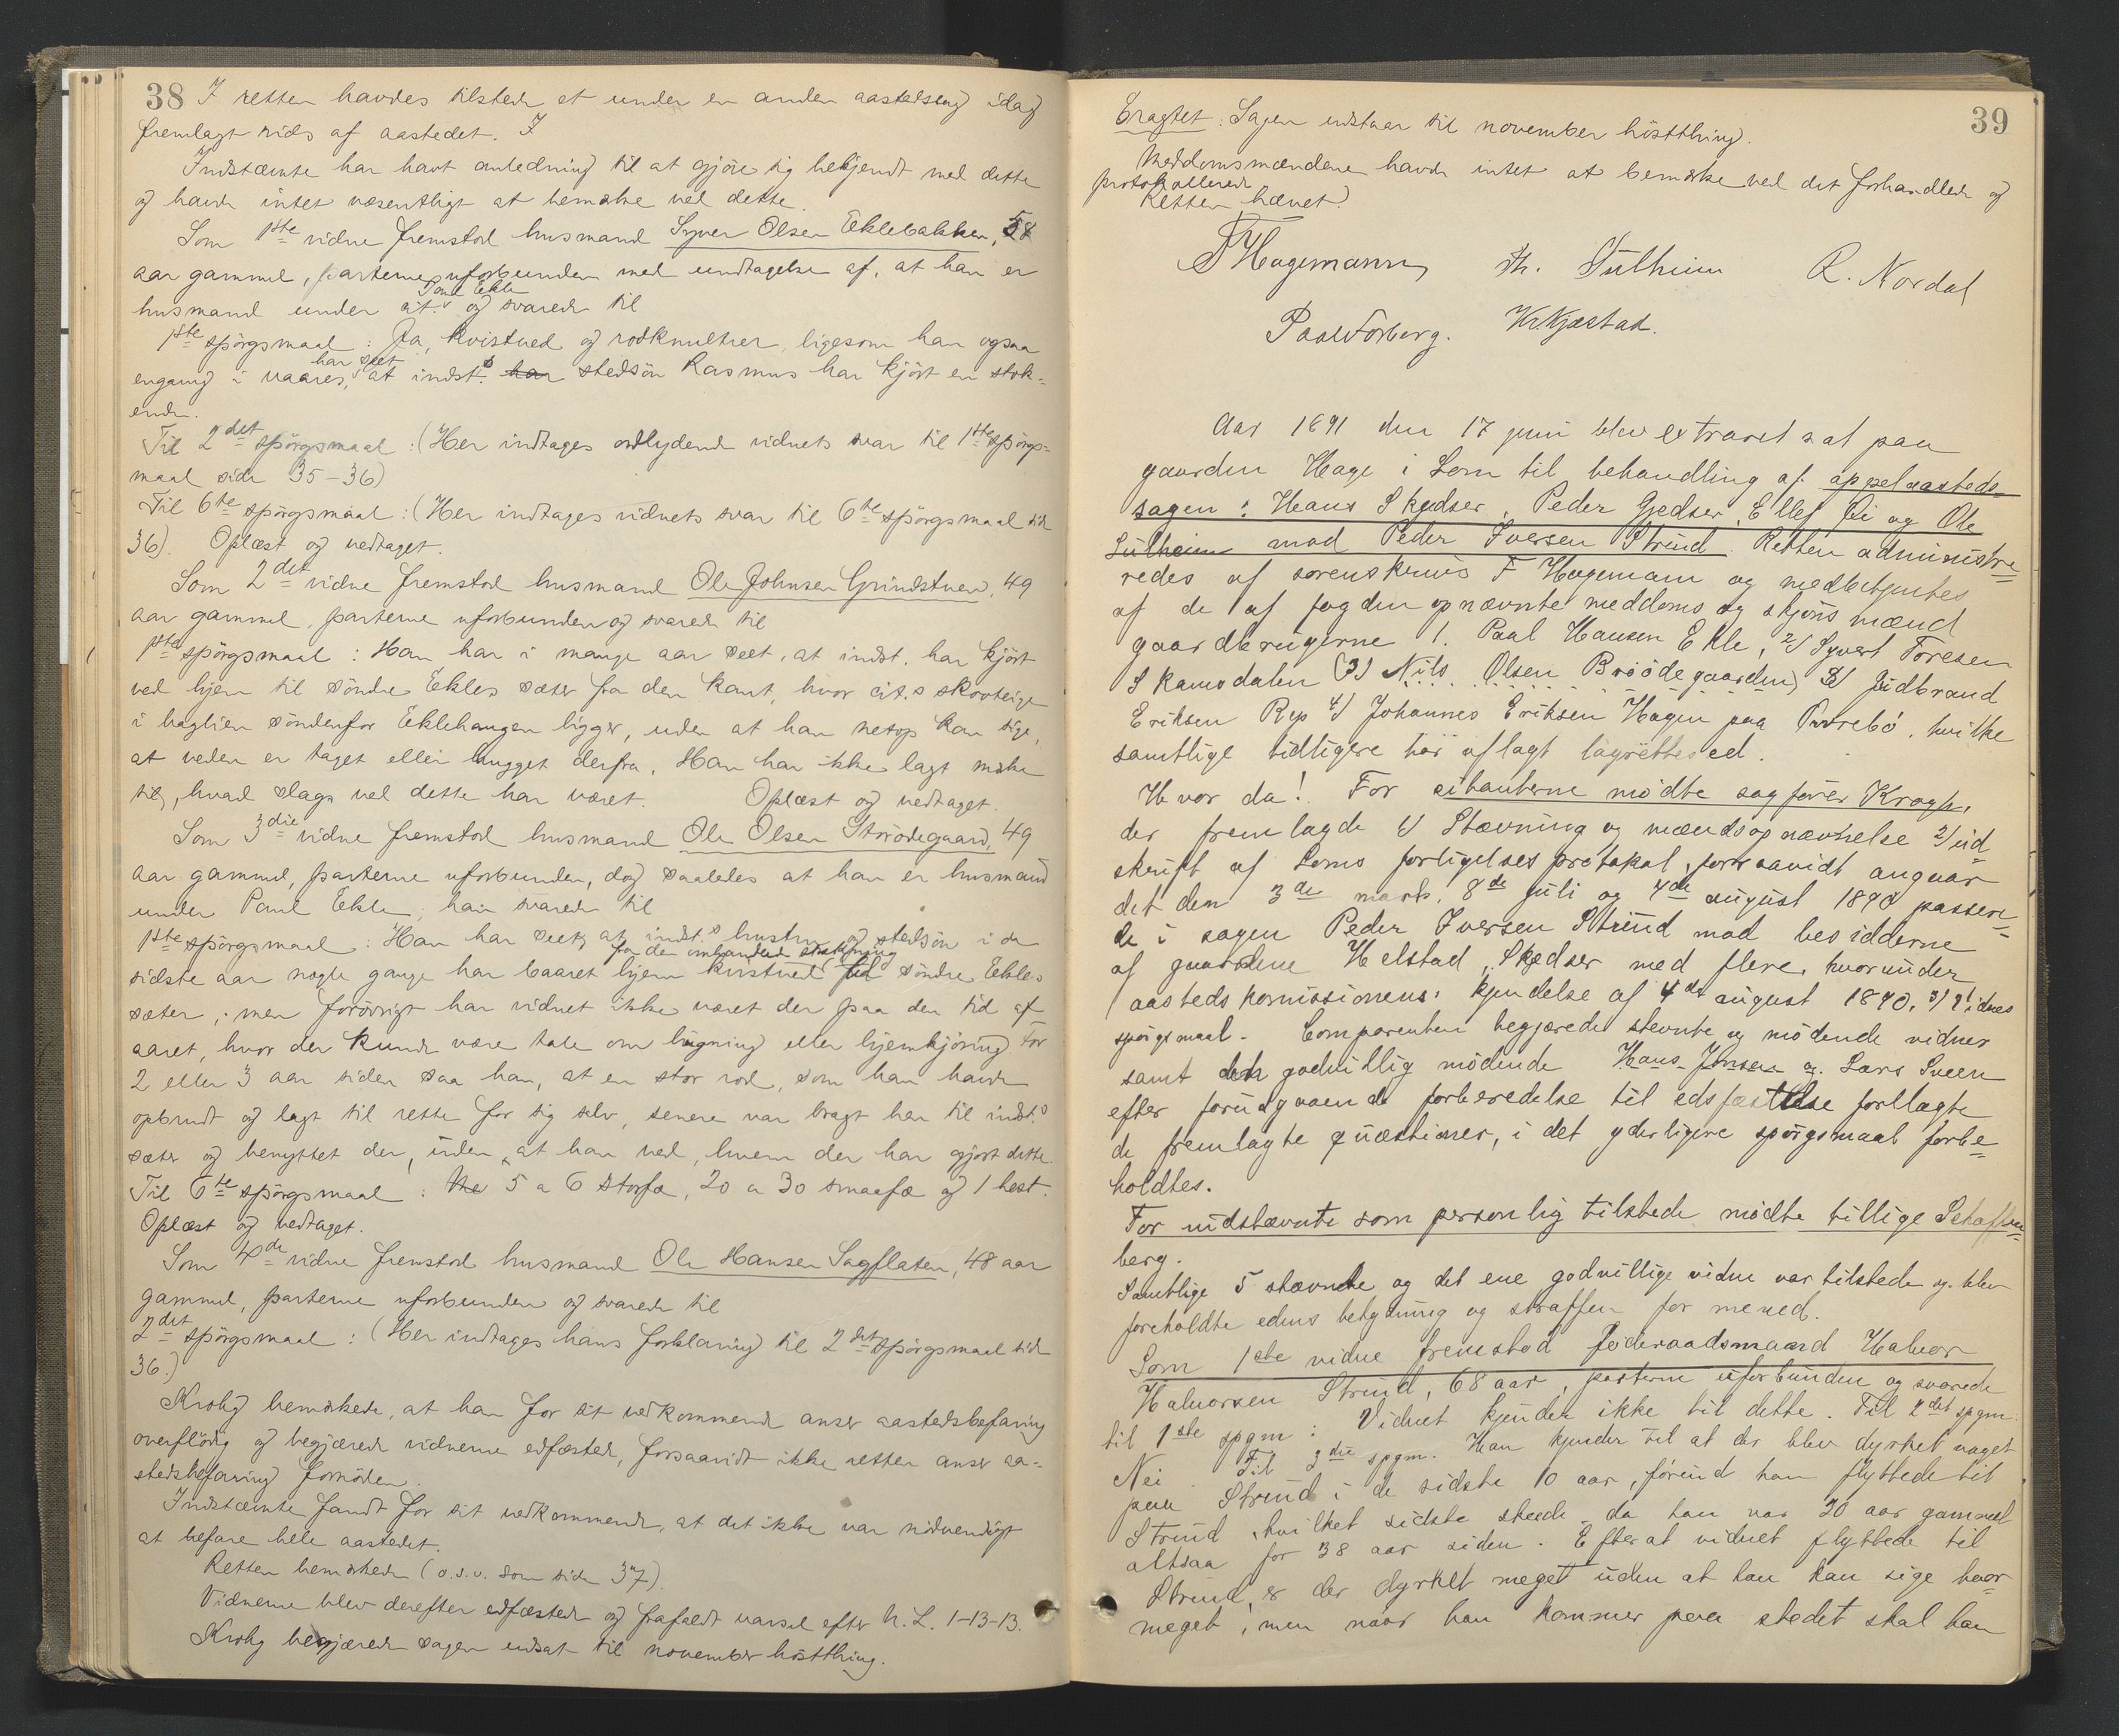 38 I retten havdes tilstede et under en anden aastedssag idag
fremlagt rids af aastedet. I
Indstævnte har havt anledning til at gjöre sig bekjendt med dette
og havde intet væsentligt at bemærke ved dette.
Som 1ste vidne fremstod husmand Syver Olsen Eklebakken, 58
aar gammel, parterne uforbunden med undtagelse af, at han er
husmand under cit. Paul Ekle og svarede til
1ste spörgsmaal: Ja, kvistved og rodknultrer, ligesom han ogsaa
engang i vaares, har seet at indst.s har stedsön Rasmus har kjört en stok-
ende.
Til 2det spörgsmaal: (Her indtages ordlydende vidnets svar til 1ste spörgs-
maal side 35-36)
Til 6te spörgsmaal: (Her indtages vidnets svar til 6te spörgsmaal side
36). Oplæst og vedtaget.
Som 2det vidne fremstod husmand Ole Johnsen Grindstuen, 49
aar gammel, parterne uforbunden og svarede til
1ste spörgsmaal: Han har i mange aar seet, at indst. har kjört
ved hjem til söndre Ekles sæter fra den kant, hvor cit.s skovteige
i baglien söndenfor Eklehaugen ligger, uden at han netop kan sige,
at veden er taget eller hugget derfra. Han har ikke lagt mærke
til, hvad slags ved dette har været. Oplæst og vedtaget.
Som 3die vidne fremstod husmand Ole Olsen Storödegaard, 49
aar gammel, parterne uforbunden, dog saaledes at han er husmand
under Paul Ekle, han svarede til
1ste spörgsmaal: Han har seet, at indst.s hustru og stedsön i de
sidste aar nogle gange har baaret hjem kvistved fra den omhandlede strækning til söndre Ekles
sæter; men forövrigt har vidnet ikke været der paa den tid af
aaret, hvor der kunde være tale om hugning eller hjemkjöring. For
2 eller 3 aar siden saa han, at en stor rod, som han havde
opbrudt og lagt til rette for sig selv, senere var bragt hen til indst.s
sæter og benyttet der, uden at han ved, hvem der har gjort dette.
Til 6te spörgsmaal: 5 a 6 storfæ, 20 a 30 smaafæ og 1 hest.
Oplæst og vedtaget.
Som 4de vidne fremstod husmand Ole Hansen Sagflaten, 48 aar
gammel, parterne uforbunden og svarede til
2det spörgsmaal: (Her indtages hans forklaring til 2det spörgsmaal side
36.)
Krohg bemærkede, at han for sit vedkommende anser aastedsbefaring
overflödig og begjærede vidnerne edfæstede, forsaavidt ikke retten anser aa-
stedsbefaring fornöden.
Indstævnte fandt for sit vedkommende, at det ikke var nödvendigt
at befare hele aastedet.
Retten bemærkede (o.s.v. som side 37).
Vidnerne blev derefter edfæstede og frafaldt varsel efter N. L. 1-13-13.
Krohg begjærede sagen udsat til november hösthing.
39
Eragtet: Sagen udstaar til november hösthing.
Meddomsmændene havde intet at bemærke ved det forhandlede og
protokollerede
Retten hævet.
F Hagemann Th. Sulheim R. Nordal
Paal Forberg. K Kjæstad.
Aar 1891 den 17 juni blev extraret sat paa
gaarden Hage i Lom til behandling af appelaasteds
sagen: Hans Skjedser, Peder Gjedser, Ellef Øi og Ole
Sulheim mod Peder Iversen Strind. Retten administre-
redes af sorenskriver F Hagemann og medbetjentes
af de af fogden opnævnte meddoms og skjöns mænd
gaardbrugerne 1. Paal Hansen Ekle, 2) Syvert Toresen
Skamsdalen (3) Nils Olsen Bröödegaarden) 3) Gudbrand
Eriksen Rep 4) Johannes Eriksen Hagen paa Furebö, hvilke
samtlige tidligere har aflagt lagrettesed.
Hvor da! For citanterne mödte sagförer Krogh,
der fremlagde 1) Stævning og mændsopnævnelse 2) ud-
skrift af Loms forligelsesprotokol, forsaavidt angaar
det den 3de marts, 8de juli og 4de august 1890 passere-
de i sagen Peder Iversen Strind mod besidderne
af gaardene Helstad, Skjedser med flere, hvorunder
aastedskomissionens kjendelse af 4de august 1890. 3) Vidnes
spörgsmaal. Comparenten begjærede stevnte og mödende vidner
samt den godvillig mödende Hans Jonsen og Lars Sveen
efter forudgaaende forberedelse til edsfæstelse forelagte
de fremlagte quæstioner, i det yderligere spörgsmaal forbe-
holdtes.
For indstævnte som personlig tilstede mödte tillige Schaffen-
berg.
Samtlige 5 stævnte og det ene godvillige vidne var tilstede og blev
foreholdte edens betydning og straffen for mened.
Som 1ste vidne fremstod föderaadsmand Halvor
Halvorsen Strind, 68 aar, parterne uforbunden og svarede
til 1ste spgm: Vidnet kjender ikke til dette. Til 2det spgm.
Nei Til 3die spgm. Han kjender til at der blev dyrket noget
paa Strind i de sidste 10 aar, förend han flyttede til
Strind, hvilket sidste skede da han var 30 aar gammel
altsaa for 38 aar siden. Efterat vidnet flyttede til
Strind, er der dyrket meget uden at han kan sige hvor-
meget; men naar han kommer paa stedet skal han